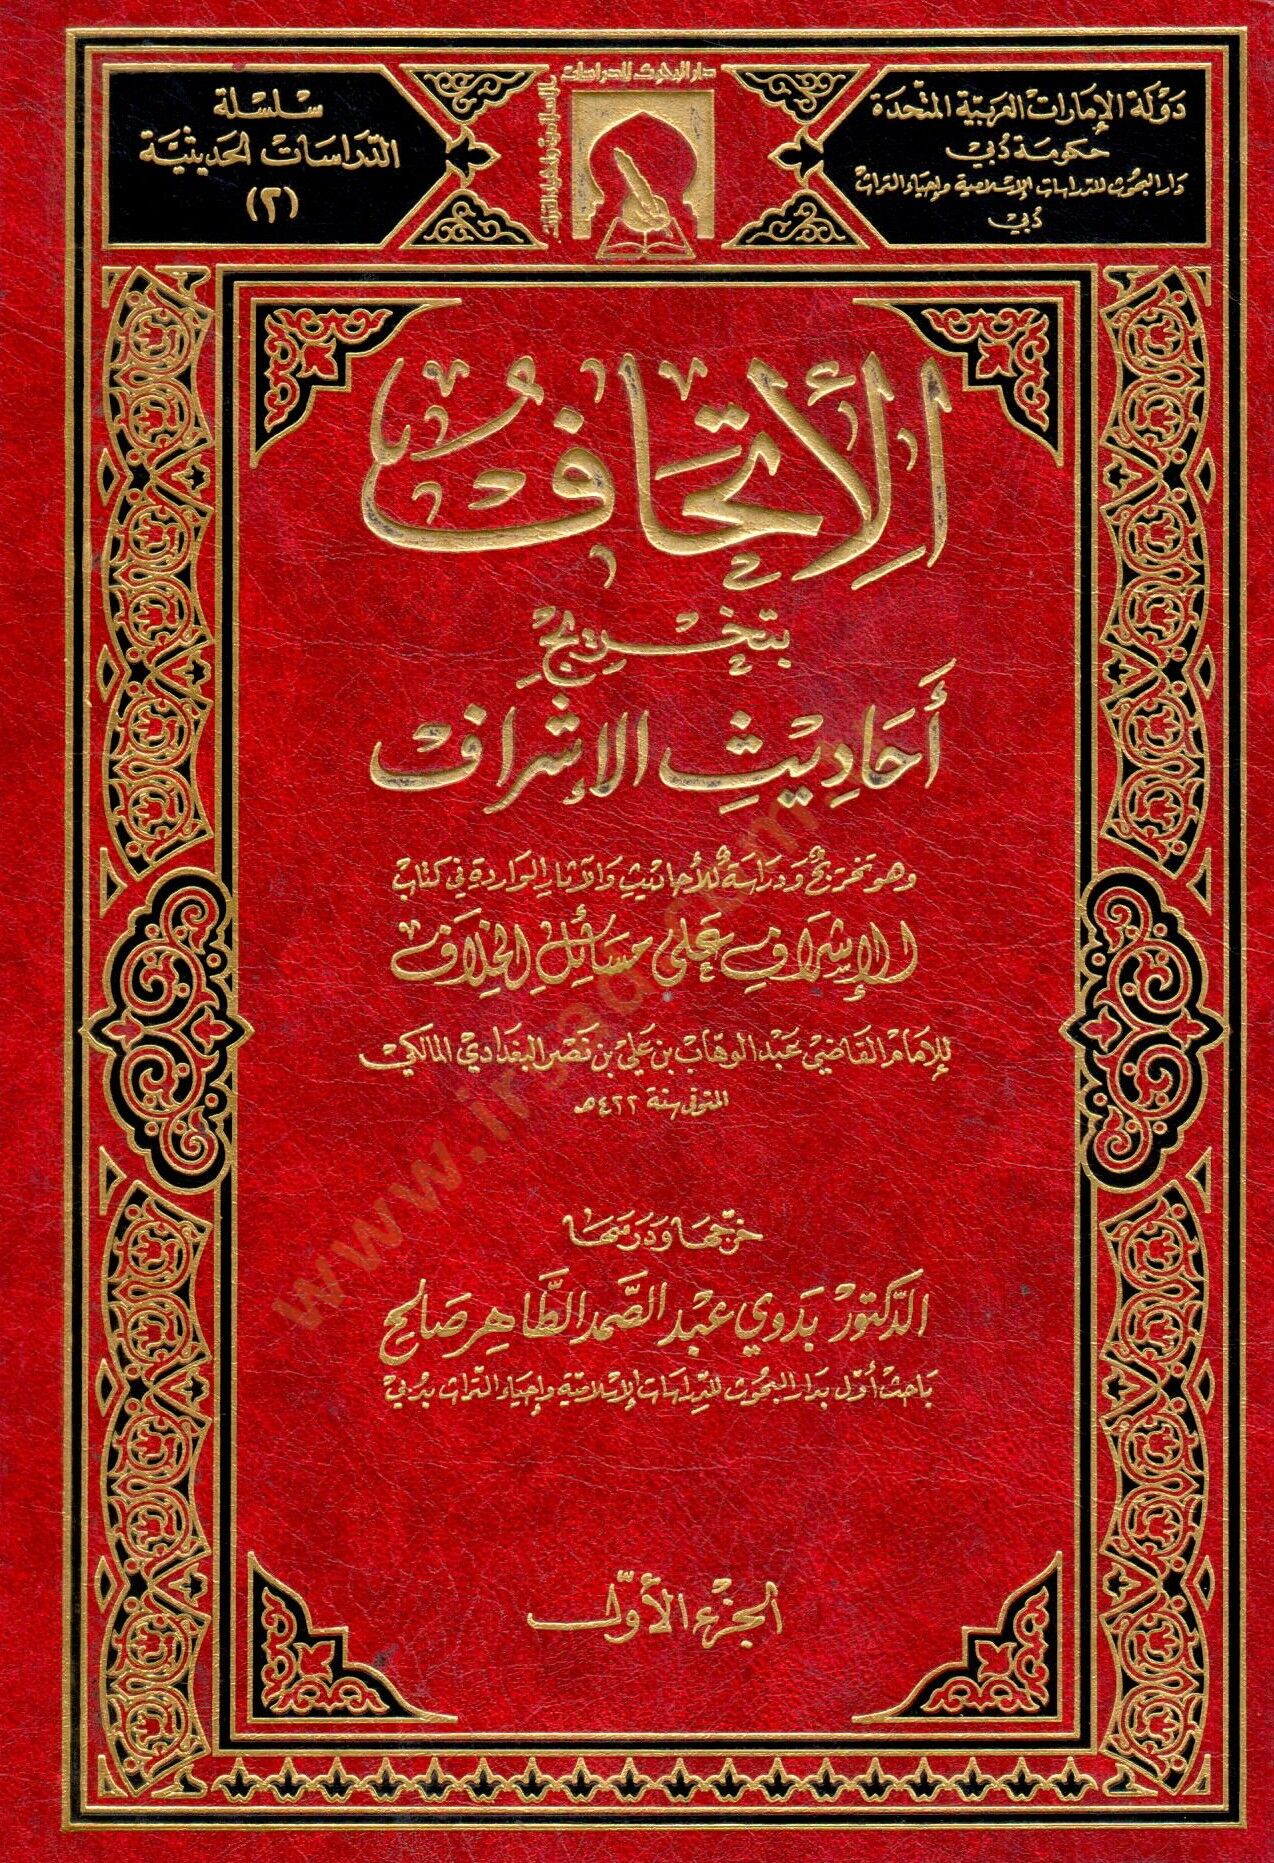 دَولَة الإمَارات العَربيَّة المتَّحدَة
حكومَة دُبيْ
دَار البحُوث للدراسَات الإسْلامية وإحيَاء التراث
دُبيْ
دار البحوث للدراسات
الإسلامية وإحياء التراث
سلسلة
الدّراسَات الحَديثيَّة
(٢)
الإتحَافُ
بتَخْريجِ
أحَاديْثِ الإشْرَافْ
وهو تخريجٌ ودراسةٌ للأحاديث والآثار الواردة في كتاب
الإشرَاف عَلى مسَائلِ الخِلافْ
للإمام القَاضيْ عَبد الوهاب بن عَلي بن نَصر البغدَاديْ المالكيْ
المتوفى سنة ٤٢٢هـ
خرّجهَا وَدرسَهَا
الدّكتورْ بدَويْ عَبْد الصَّمد الطَّاهِر صَالِح
باحث أوّل بدَار البحُوث للدِّراسَات الإسْلاميَّة وإحيَاء التّراث بدُبيْ
الجزءُ الأوَّل
www.iryad.com